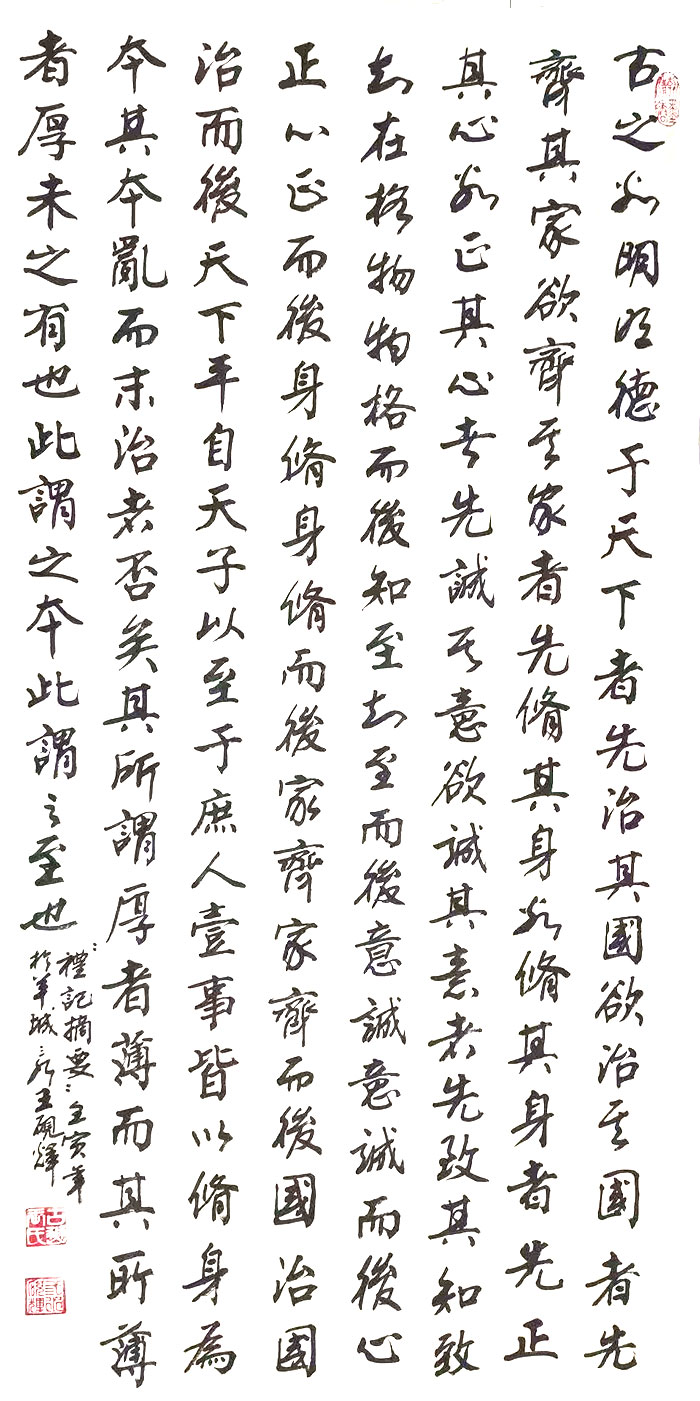 古之欲明明德于天下者先治其國欲治其國者先
齊其家欲齊其家者先脩其身欲脩其身者先正
其心欲正其心者先誠其意欲誠其意者先致其知致
知在格物物格而後知至知至而後意誠意誠而後心
正心正而後身脩身脩而後家齊家齊而後國治國
治而後天下平自天子以至于庶人壹事皆以脩身為
本其本亂而末治者否矣其所謂厚者薄而其所薄
者厚未之有也此謂之本此謂之至也
禮記摘要壬寅年
於羊城王硯輝